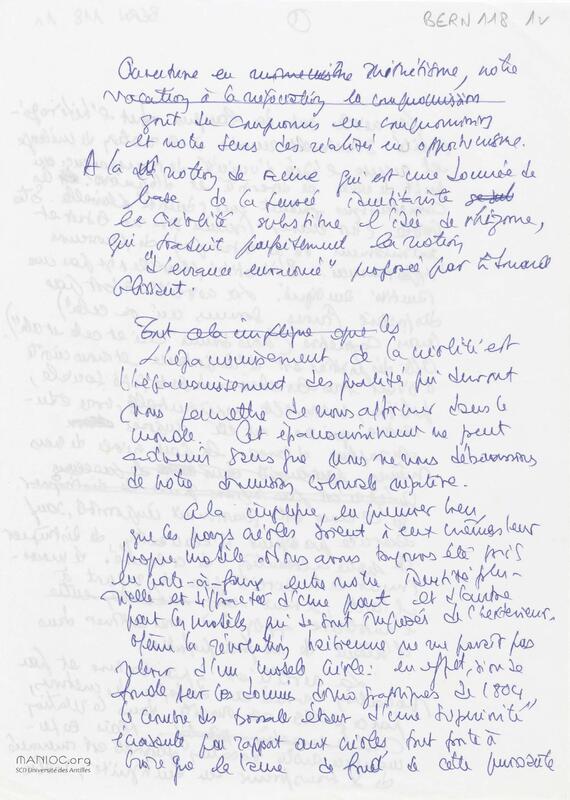 BERN 118 1v
en mimétisme, notre
vocation à la rénovation la compromission
goût du compromis en compromission
et notre sens des réalités en opportunisme.
A la notion de racine qui est une donnée de
base de la pensée identitariste
la créolité substitue l'idée de rhizome,
qui traduit parfaitement la notion
"d'errance enracinée" proposée par Edouard
Glissant.
Tout cela implique que les
L'épanouissement de la créolité est
l'épanouissement des qui devront
nous permettre de nous affirmer dans le
monde. Cet épanouissement ne peut
advenir sans que nous ne nous débarrassions
de notre coloniale
Cela implique, en premier lieu,
que les pays créoles soient à eux mêmes leur
propre modèle. Nous avons toujours été pris
en porte-à-faux entre notre identité plu-
rielle et diffractée d'une part et d'autre
part les modèles qui se sont imposés de l'extérieur.
Même la révolution haïtienne ne me paraît pas
d'un modèle créole: en effet, si on se
fonde sur les données démographiques de 1804
le nombre des bossales étant d'une supériorité
écrasante par rapport aux créoles tout porte à
croire que la lame de fond de cette puissante
MANIOC.org
SCD Université des Antilles